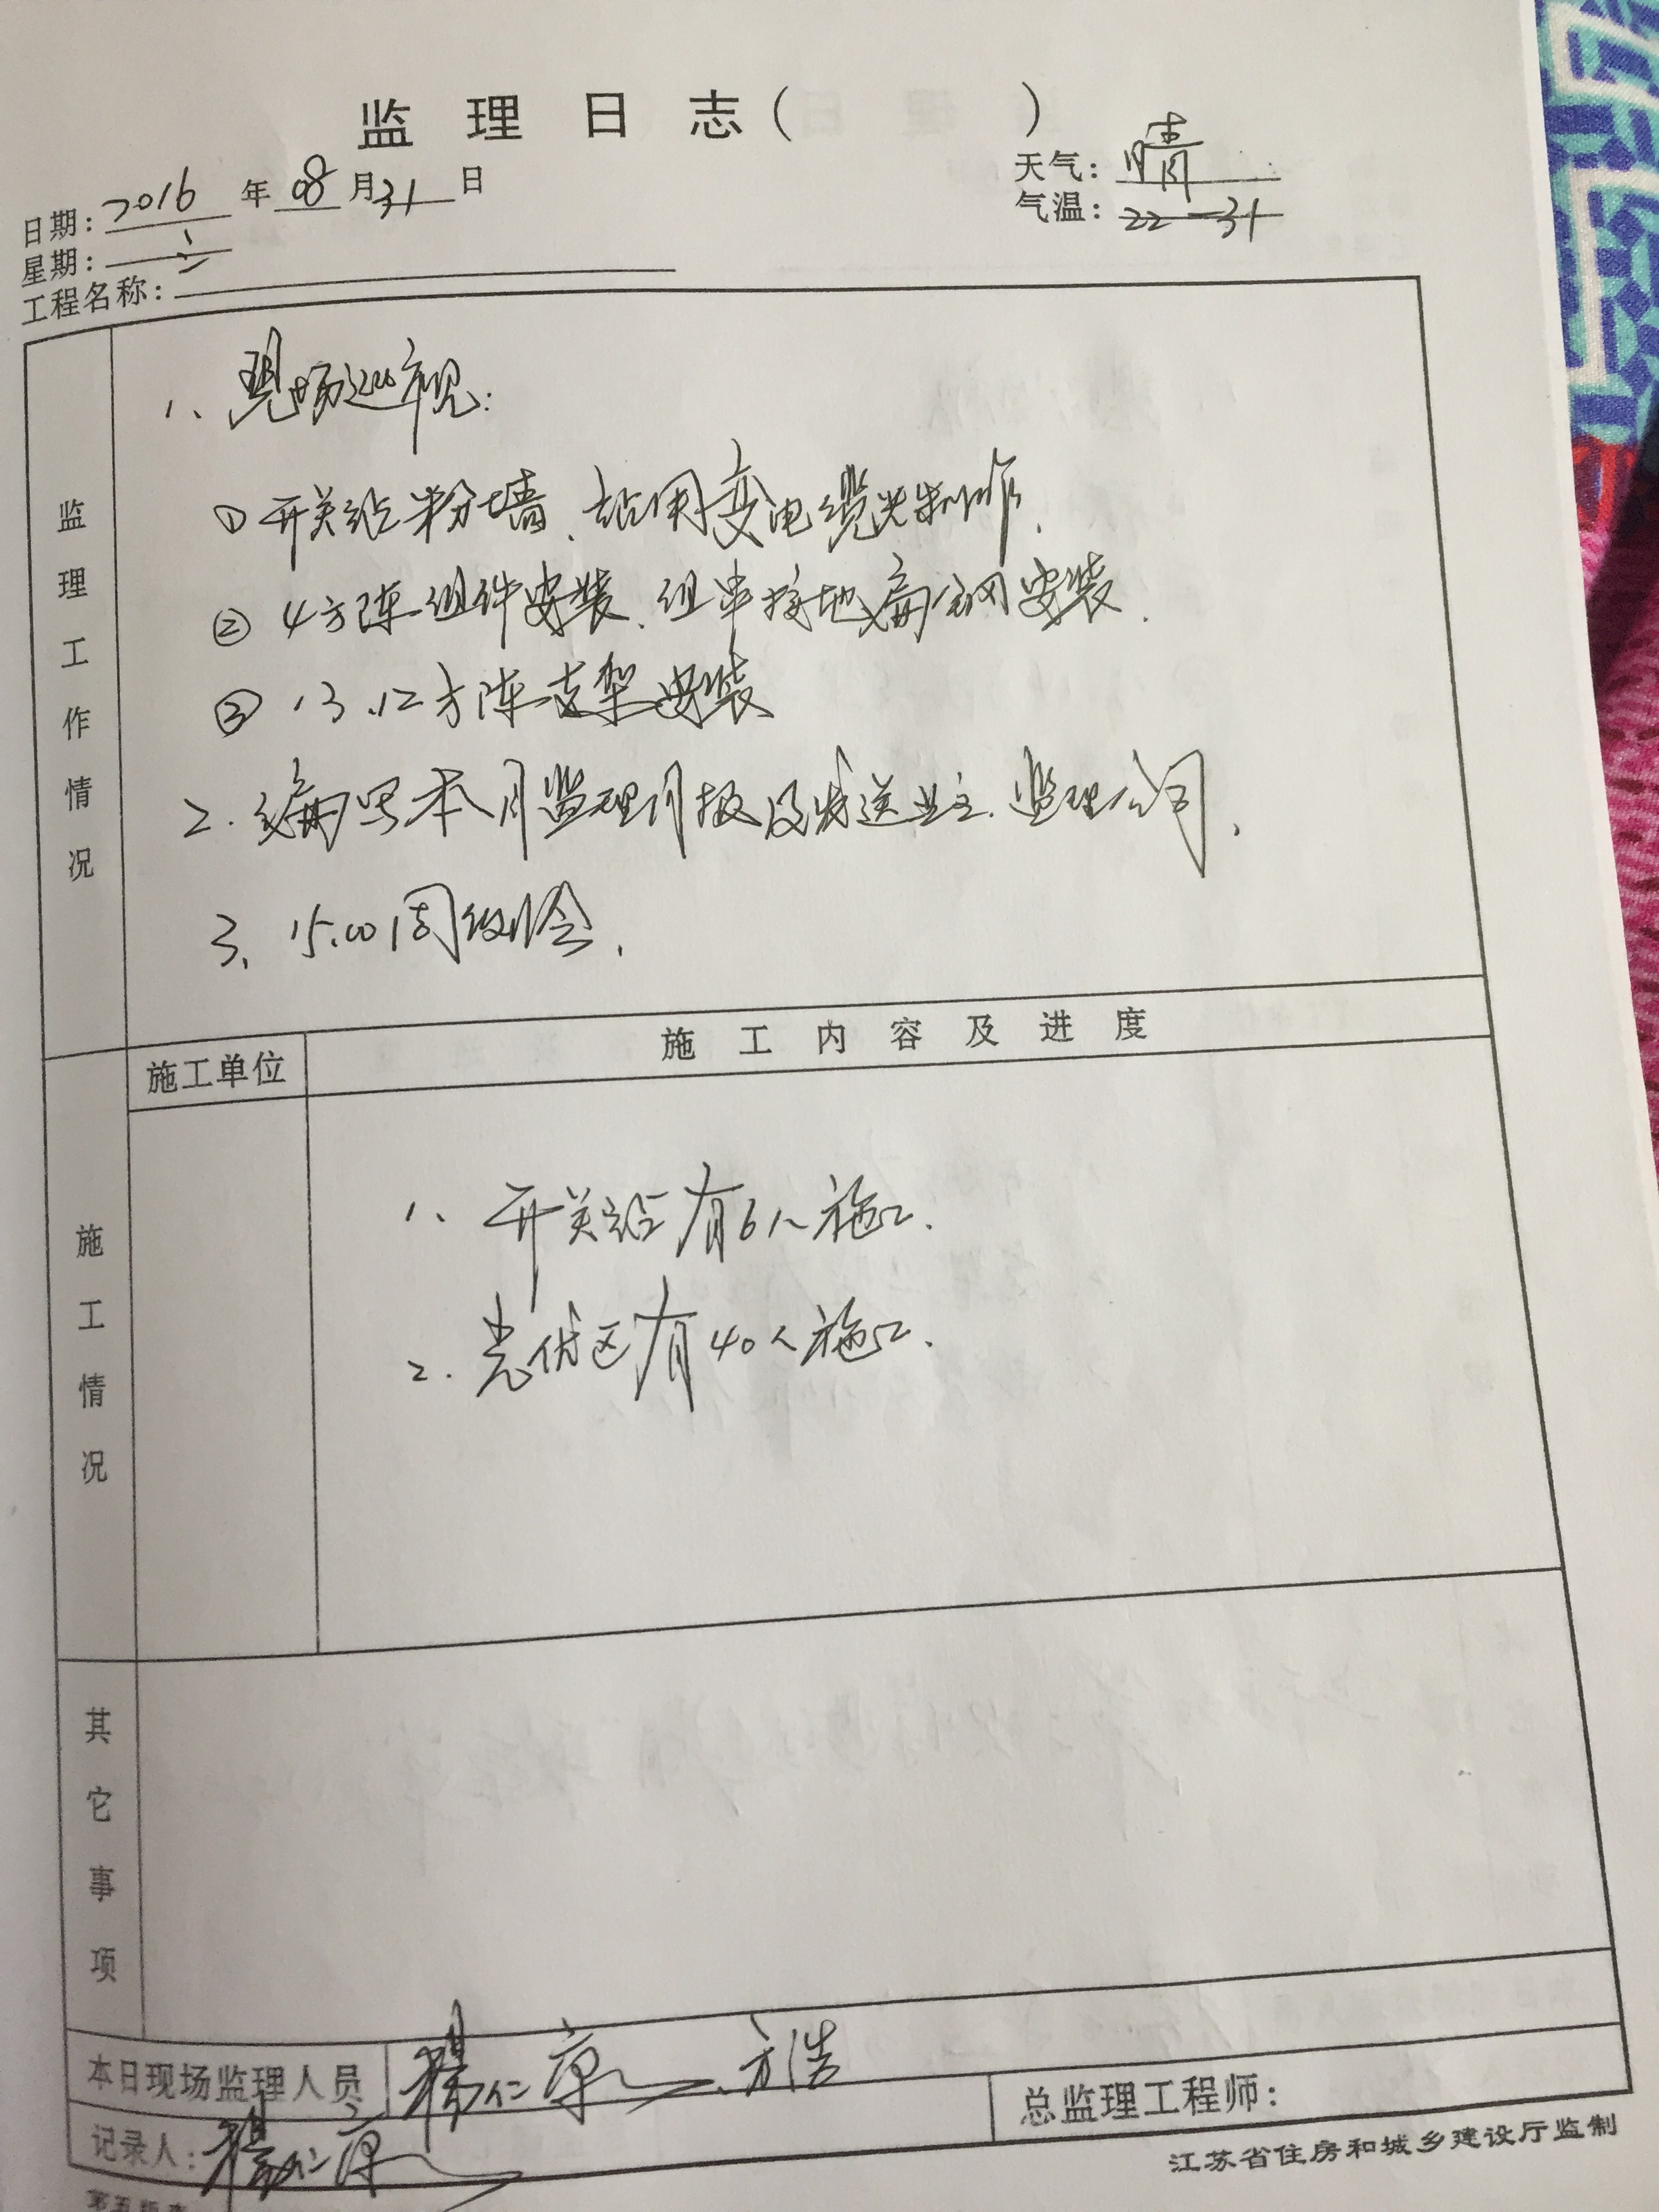 监理日志( )
日期: 2016 年 08 月 31 日
天气: 晴
星期: 三
气温: 22—31
工程名称:
监理工作情况
1、现场巡视:
①开关站粉墙、站用变电缆头制作.
②4方阵组件安装、组串接地扁钢安装.
③13、12方阵支架安装
2.编写本月监理月报及发送业主、监理公司.
3、15:00周例会.
施工单位
施工内容及进度
施工情况
1、开关站有6人施工.
2.光伏区有40人施工.
其它事项
本日现场监理人员 杨仁康、方浩
记录人: 杨仁康
总监理工程师:
江苏省住房和城乡建设厅监制